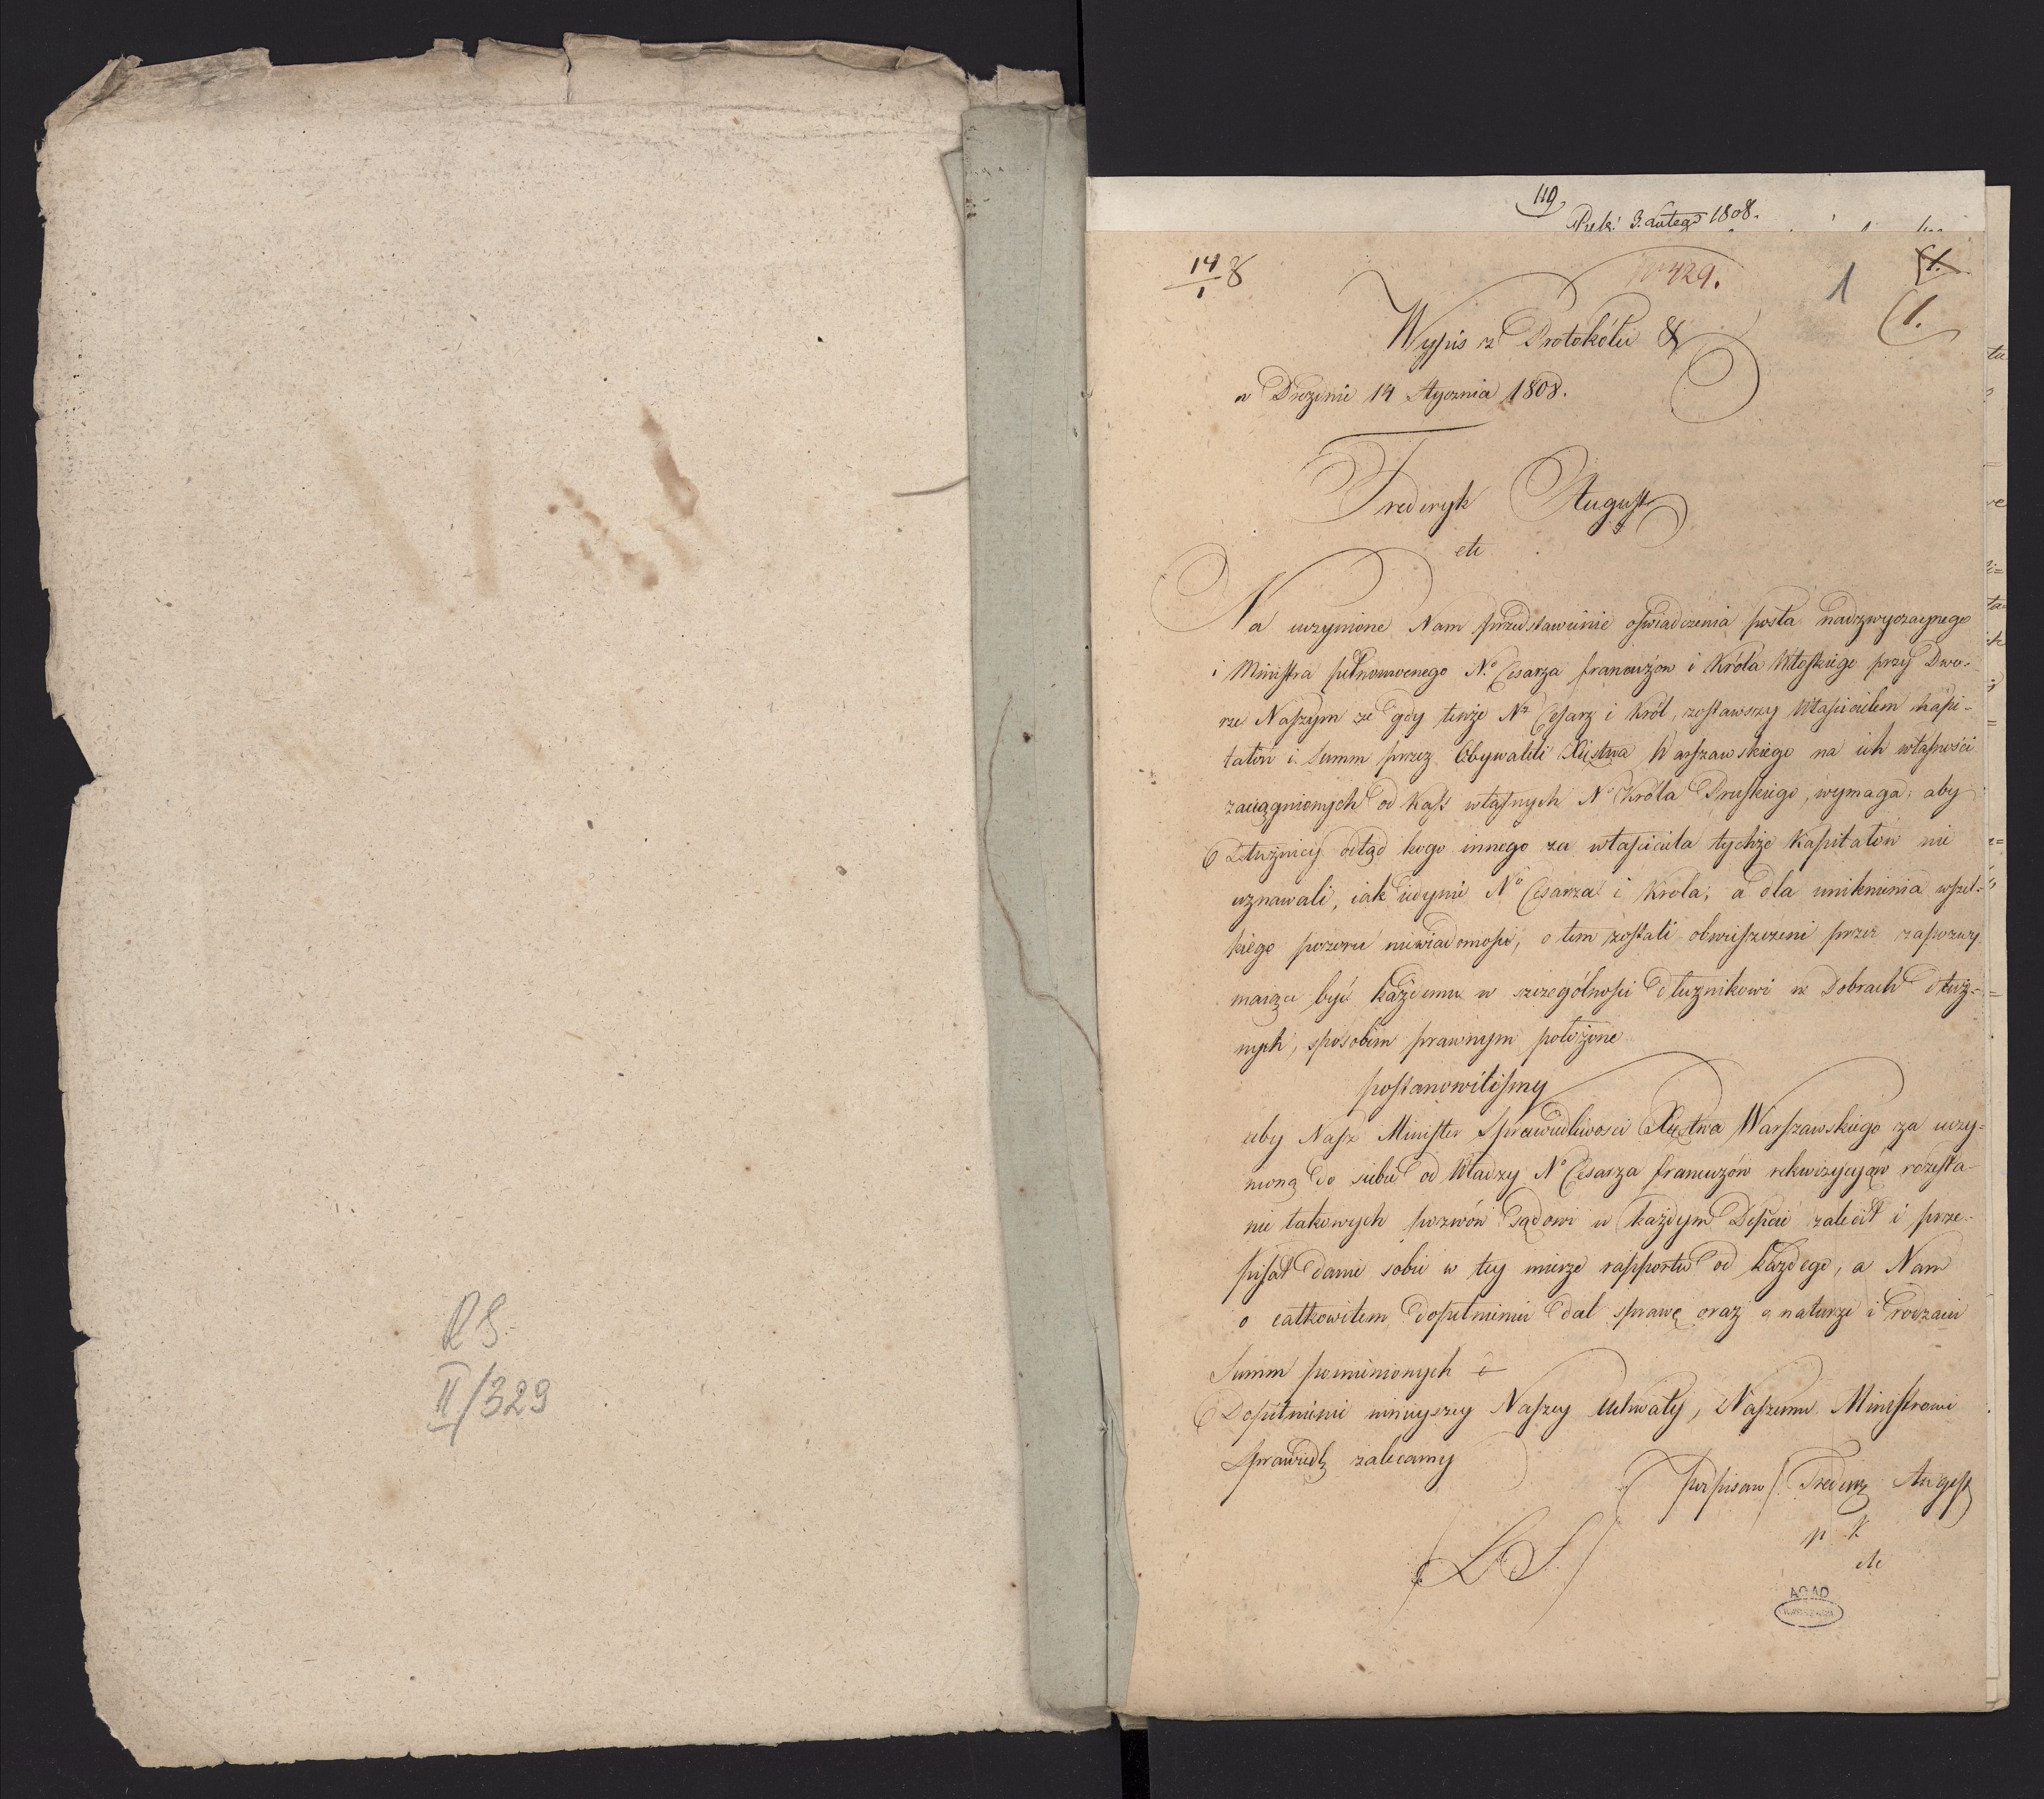 RS.
II/329
119
Pręk: 3. Lutego 1808.
14/1 8
No 429.
1
1.
(1.
Wypis z Protokółu &
w Dreznie 14 Stycznia 1808.
Frederyk August
etc
Na uczynione Nam przedstawienie oświadczenia posła nadzwyczaynego
i Ministra pełnomocnego No Cesarza francuzow i Króla Włoskiego przy Dwo-
rze Naszym ze gdy tenże Nz Cesarz i Król, zostawszy Właścicielem kapi-
tałów i Summ przez Obywateli Xięstwa Warszawskiego na ich własności
zaciągnionych od Kass własnych No Króla Pruskiego, wymaga: aby
Dłużnicy odtąd kogo innego za właściciela tychże Kapitałow nie
uznawali, iak iedynie No Cesarza i Krola; a dla uniknienia wszel-
kiego pozoru niewiadomości, o tem zostali obwieszczeni przez zapozwy
maiące być każdemu w szczególności dłużnikowi w Dobrach dłuż-
nych, sposobem prawnym położone
postanowiliśmy
ażeby Nasz Minister Sprawiedliwosci Xięstwa Warszawskiego za uczy-
nioną do siebie od Władzy No Cesarza francuzów rekwizycyą w rozesła-
nie takowych pozwów Sądowi w każdym Depcie zalecił i prze-
pisał danie sobie w tey mierze rapportu od każdego, a Nam
o całkowitem dopełnieniu dał sprawę oraz o naturze i rodzaiu
Summ pomienionych
Dopełnienie ninieyszey Naszey Uchwały, Naszemu Ministrowi
Sprawiedl: zalecamy
podpisano/ Frederyk August
/L.S./
p K
etc
AGAD
WARSZAWA